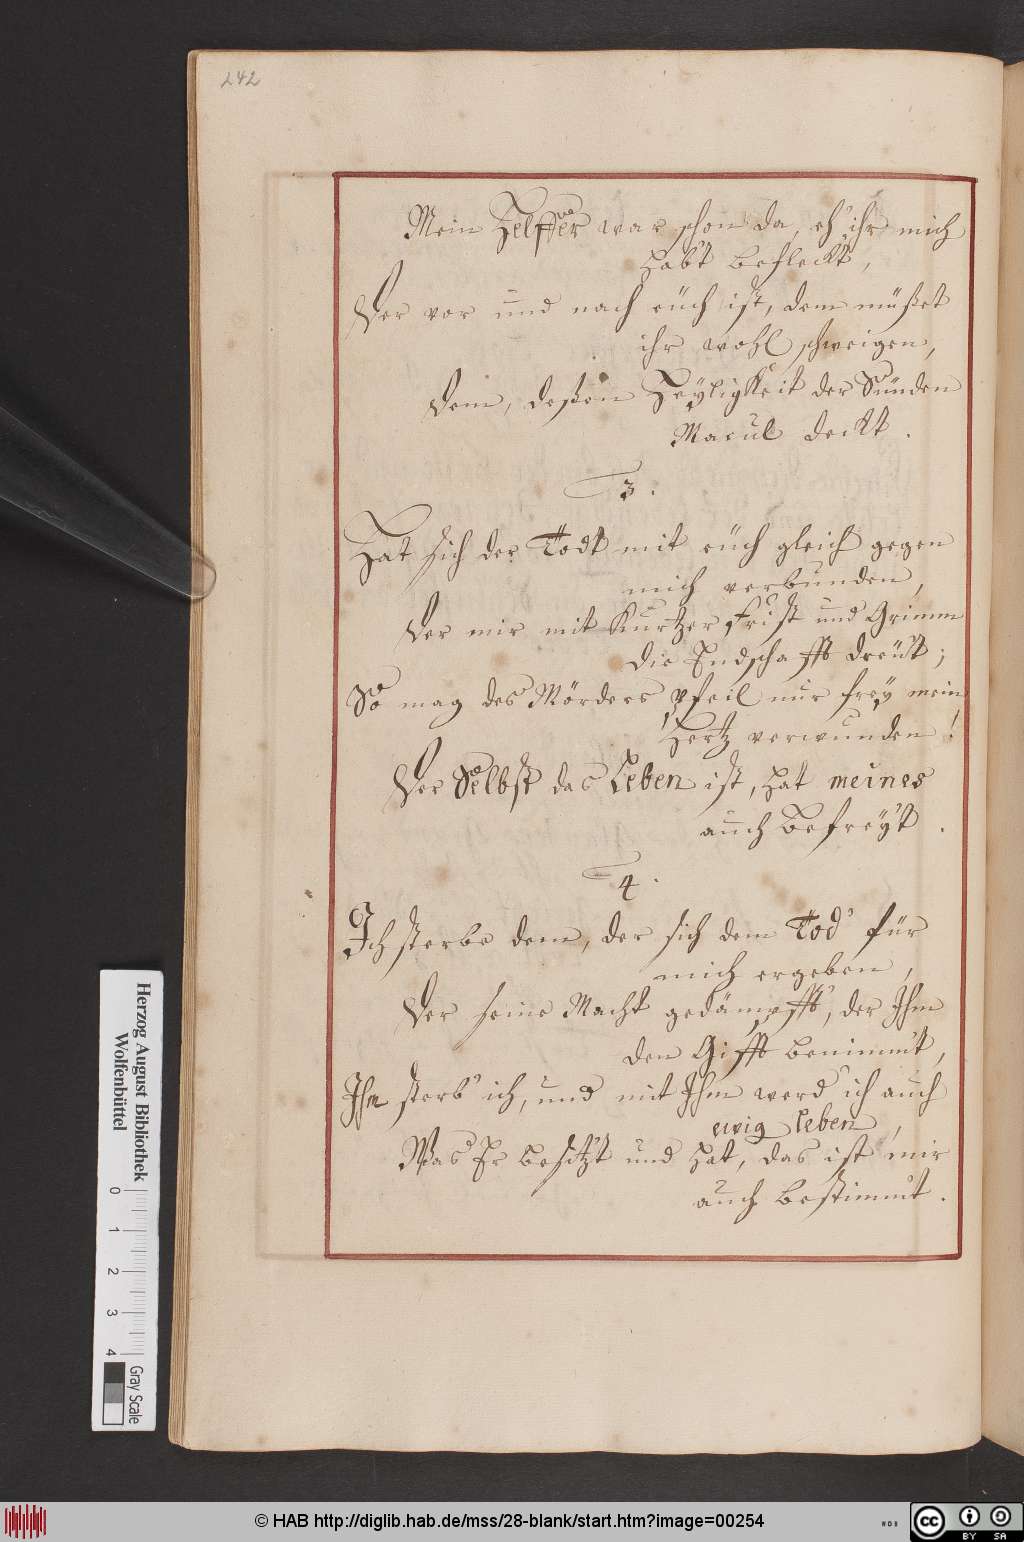 242
Mein Helffer war schon da, eh' ihr mich
habt befleckt,
Der vor und nach eüch ist, dem müßet
ihr wohl schweigen,
Dem, deßen Heyligkeit der Sünden
Macul deckt.
3.
Hat sich der Todt mit eüch gleich gegen
mich verbunden,
Der mir mit Kurtzer Frist und Grimm
die Endschafft dreüt;
So mag des Mörders pfeil nur frey mein
Hertz verwunden!
Der Selbst das Leben ist, hat meines
auch befreyt.
4.
Ich sterbe dem, der sich dem Tod' für
mich ergeben,
Der seine Macht gedämpfft, der Ihm
den Gifft benimmt,
Ihm sterb' ich, und mit Ihm werd' ich auch
ewig leben,
Was Er besitzt und hat, das ist mir
auch bestimmt.
Herzog August Bibliothek
Wolfenbüttel
0 1 2 3 4
Gray Scale
© HAB http://diglib.hab.de/mss/28-blank/start.htm?image=00254
WDB
cc BY SA